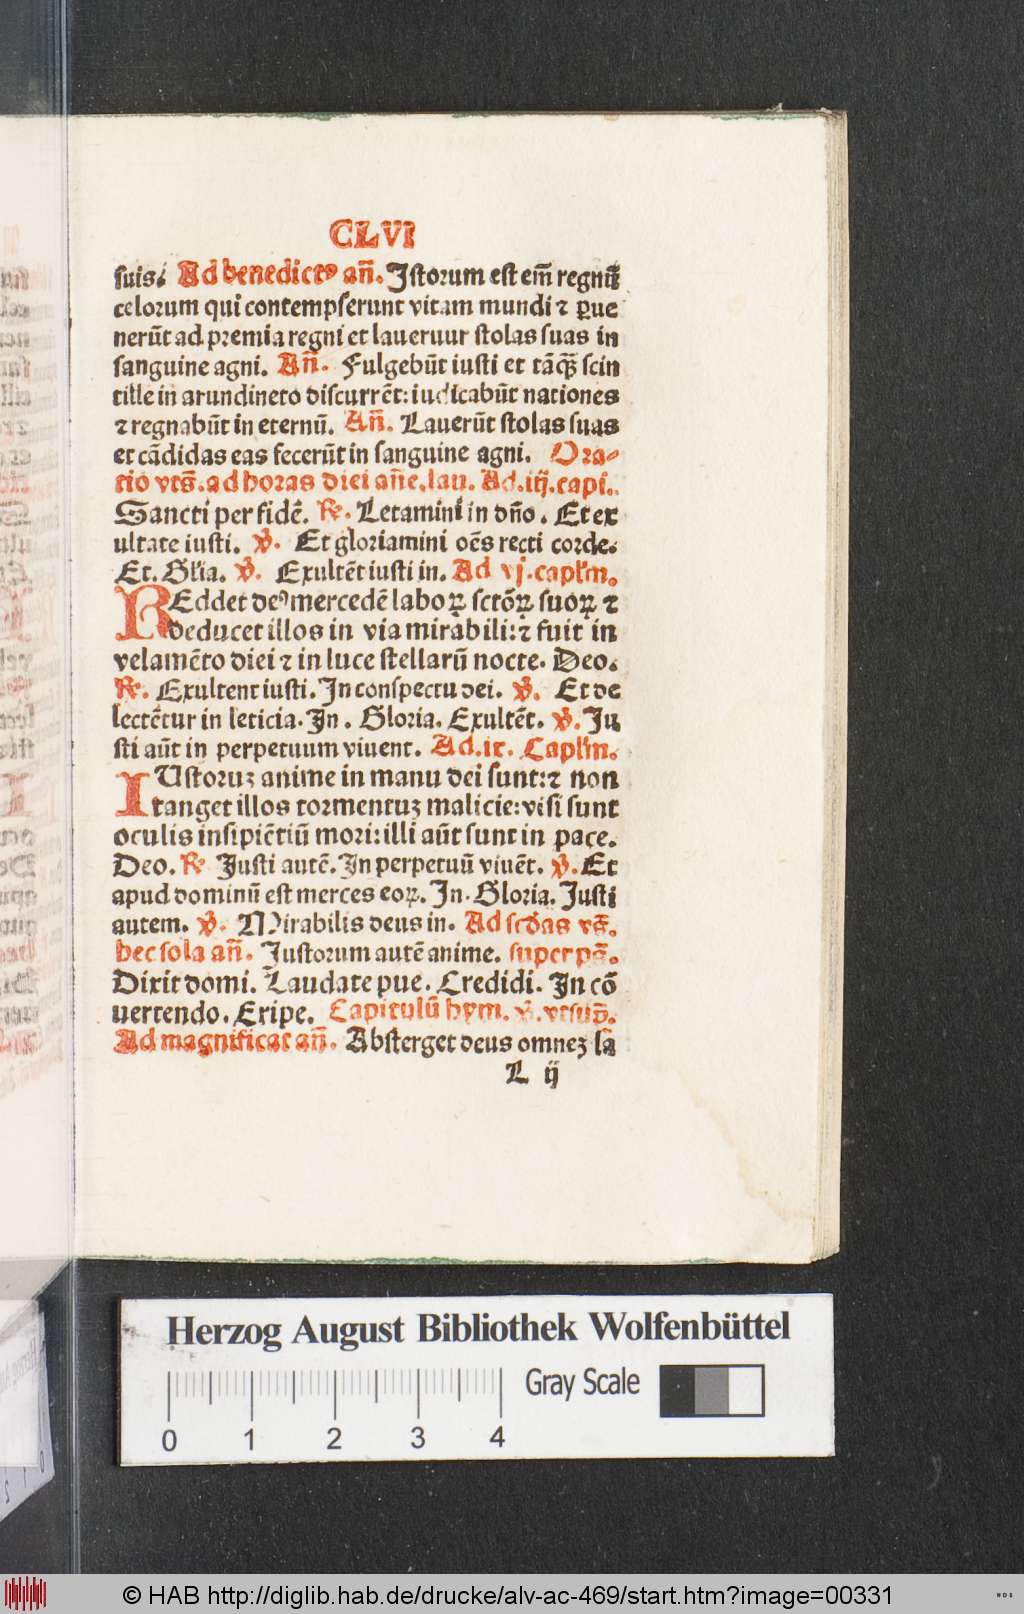 CLVI
suis. Ad benedictꝰ an̄. Istorum est em̄ regnū
celorum qui contempserunt vitam mundi ⁊ ꝑue
nerūt ad premia regni et lauerunt stolas suas in
sanguine agni. An̄. Fulgebūt iusti et tāꝙ̄ scin
tille in arundineto discurrēt: iudicabūt nationes
⁊ regnabūt in eternū. An̄. Lauerūt stolas suas
et cādidas eas fecerūt in sanguine agni. Ora-
tio vts̄. ad horas diei an̄e. lau. Ad. iij. capi.
Sancti per fidē. R̄. Letamini in dn̄o. Et ex
ultate iusti. v̄. Et gloriamini oēs recti corde.
Et. Gl'ia. v̄. Exultēt iusti in. Ad vj. capl'm.
REddet deꝰ mercedē laboꝝ sctōꝝ suoꝝ ⁊
deducet illos in via mirabili: ⁊ fuit in
velamēto diei ⁊ in luce stellarū nocte. Deo.
R̄. Exultent iusti. In conspectu dei. v̄. Et de
lectētur in leticia. In. Gloria. Exultēt. v̄. Iu
sti aūt in perpetuum viuent. Ad. ix. Capl'm.
IUstoruꝫ anime in manu dei sunt: ⁊ non
tanget illos tormentuꝫ malicie: visi sunt
oculis insipiētiū mori: illi aūt sunt in pace.
Deo. R̄ Iusti autē. In perpetuū viuēt. v̄. Et
apud dominū est merces eoꝝ. In. Gloria. Iusti
autem. v̄. Mirabilis deus in. Ad scd̄as vs̄.
hec sola an̄. Iustorum autē anime. super ps̄.
Dixit domi. Laudate pue. Credidi. In cō
uertendo. Eripe. Capitulū hym. v̄. vtsup̄.
Ad magnificat an̄. Absterget deus omneꝫ la
L ij
Herzog August Bibliothek Wolfenbüttel
Gray Scale
0 1 2 3 4
© HAB http://diglib.hab.de/drucke/alv-ac-469/start.htm?image=00331